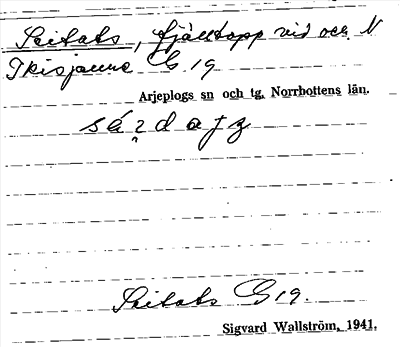 Seitats, fjälltopp vid och N
Ikisjaure G 19
Arjeplogs sn och tg, Norrbottens län.
Seitats G 19.
Sigvard Wallström, 1941.